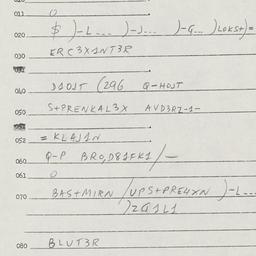 011
0
020 $ )-L... )-J... )-G... )LOKS+)=
030 ERC3X1NT3R
040 D10JT (296 Q-HOJT
050 S+PRENKAL3X AVD3RZ-1-
052 = KLAJ1N
060 Q-P BRO,D81FK1/-
061 0
070 BAS+MIRN/UPS+PRE4XN )-L...
)2G1L1
080 BLUT3R